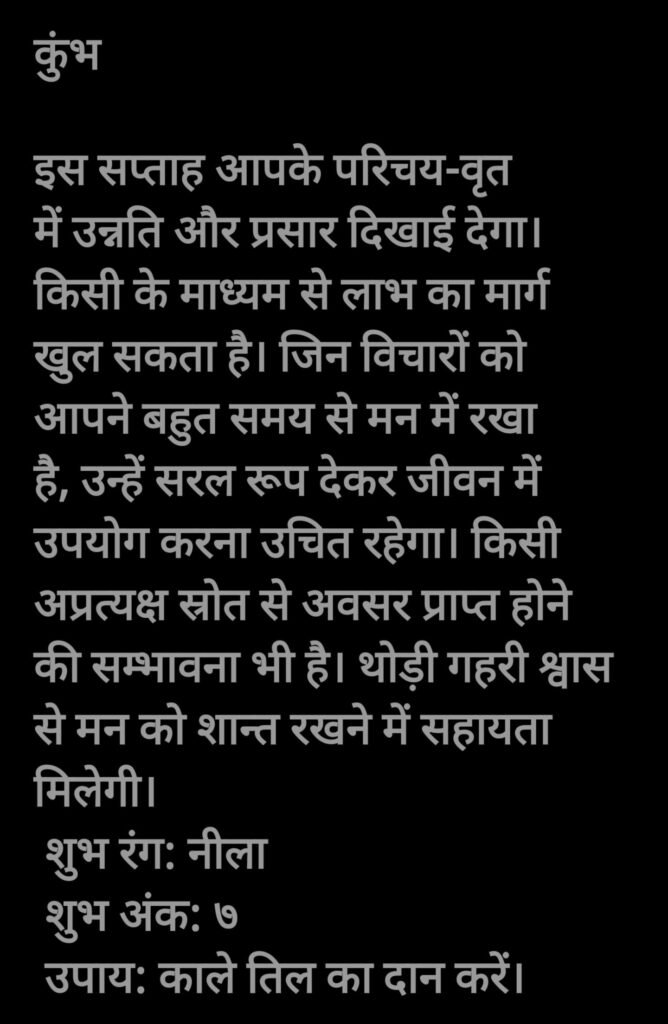 कुंभ
इस सप्ताह आपके परिचय-वृत
में उन्नति और प्रसार दिखाई देगा।
किसी के माध्यम से लाभ का मार्ग
खुल सकता है। जिन विचारों को
आपने बहुत समय से मन में रखा
है, उन्हें सरल रूप देकर जीवन में
उपयोग करना उचित रहेगा। किसी
अप्रत्यक्ष स्रोत से अवसर प्राप्त होने
की सम्भावना भी है। थोड़ी गहरी श्वास
से मन को शान्त रखने में सहायता
मिलेगी।
शुभ रंग: नीला
शुभ अंक: ७
उपाय: काले तिल का दान करें।